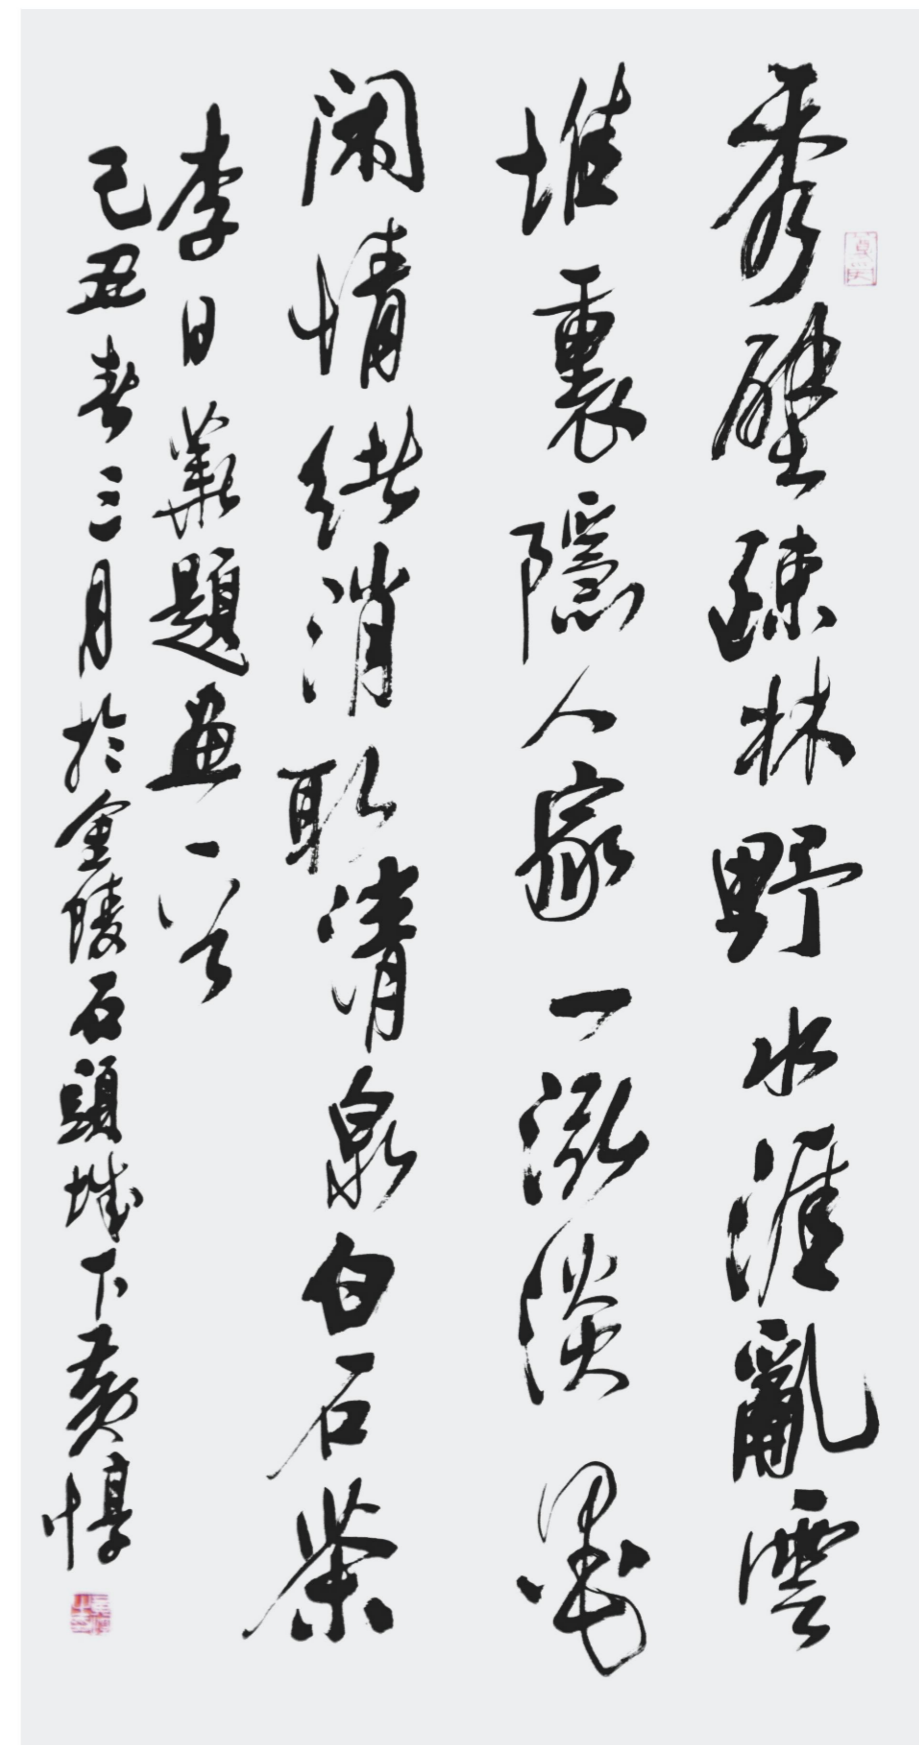 秀壁疎林野水涯亂雲
堆裏隱人家一泓淡墨
閑情緒消取清泉白石柴
李日華題畫一首
己丑春三月於金陵石頭城下黃惇